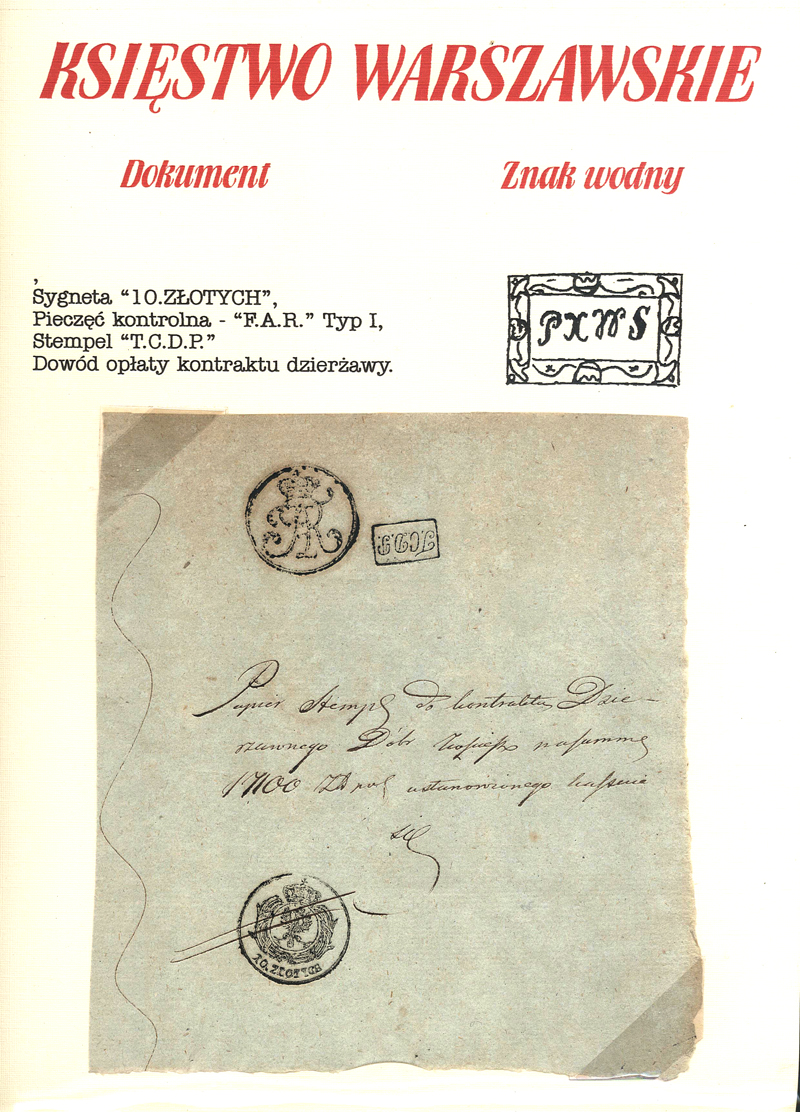 KSIĘSTWO WARSZAWSKIE
Dokument
Znak wodny
Sygneta “10.ZŁOTYCH”,
Pieczęć kontrolna - “F.A.R.” Typ I,
Stempel “T.C.D.P.”
Dowód opłaty kontraktu dzierżawy.
PXWS
TCD.P.
Papier Stempl do kontraktu Dzie-
rzawnego Dóbr na summę
1700 ustanowionego
10. ZŁOTYCH